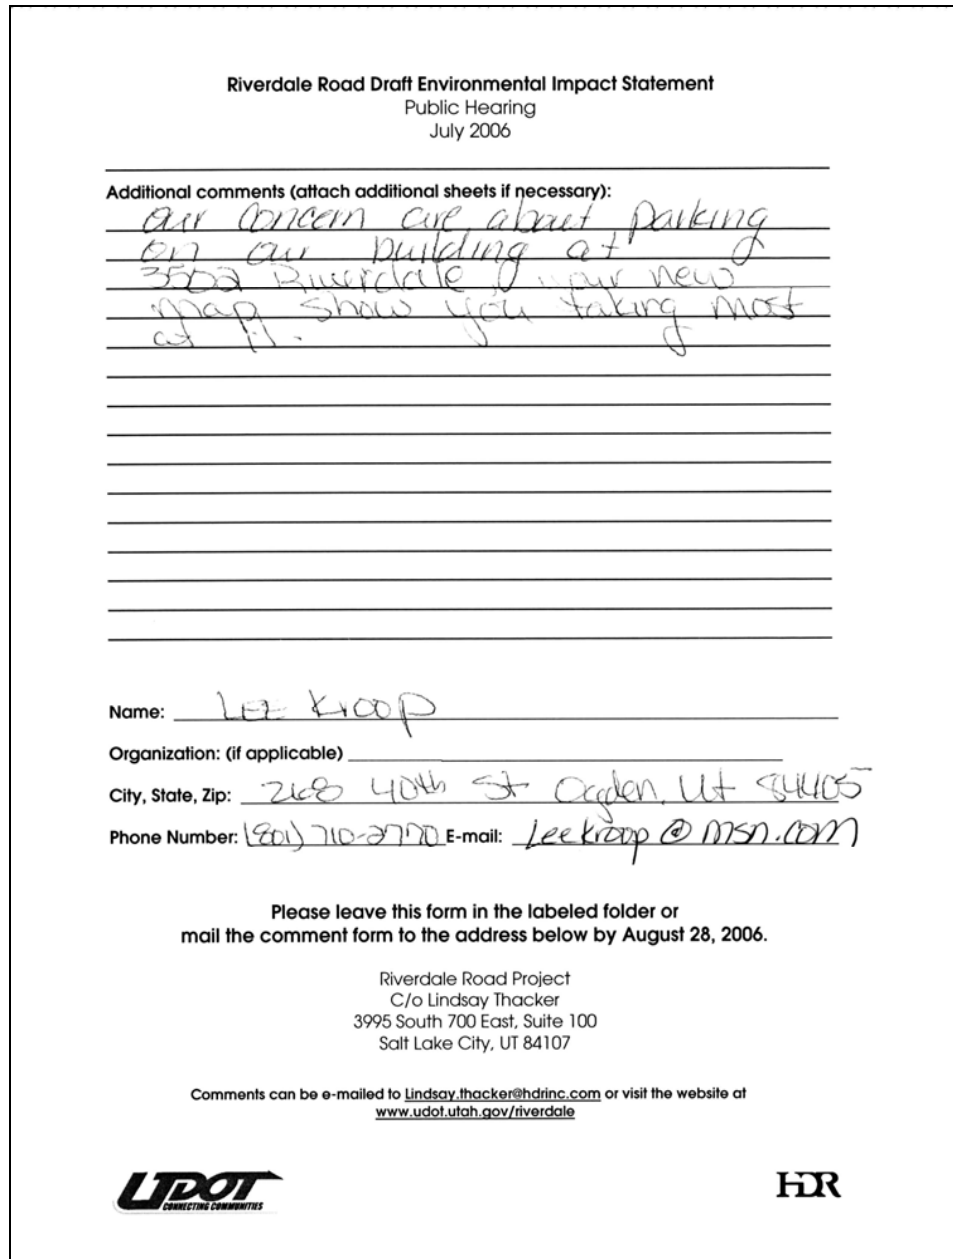 Riverdale Road Draft Environmental Impact Statement
Public Hearing
July 2006
Additional comments (attach additional sheets if necessary):
our concern are about parking
on our building at
3502 Riverdale your new
map show you taking most
of it.
Name: Lee Kroop
Organization: (if applicable)
City, State, Zip: 268 40th St Ogden, Ut 84405
Phone Number: (801) 710-2770 E-mail: Leekroop@msn.com
Please leave this form in the labeled folder or
mail the comment form to the address below by August 28, 2006.
Riverdale Road Project
C/o Lindsay Thacker
3995 South 700 East, Suite 100
Salt Lake City, UT 84107
Comments can be e-mailed to Lindsay.thacker@hdrinc.com or visit the website at
www.udot.utah.gov/riverdale
UDOT HDR
CONNECTING COMMUNITIES